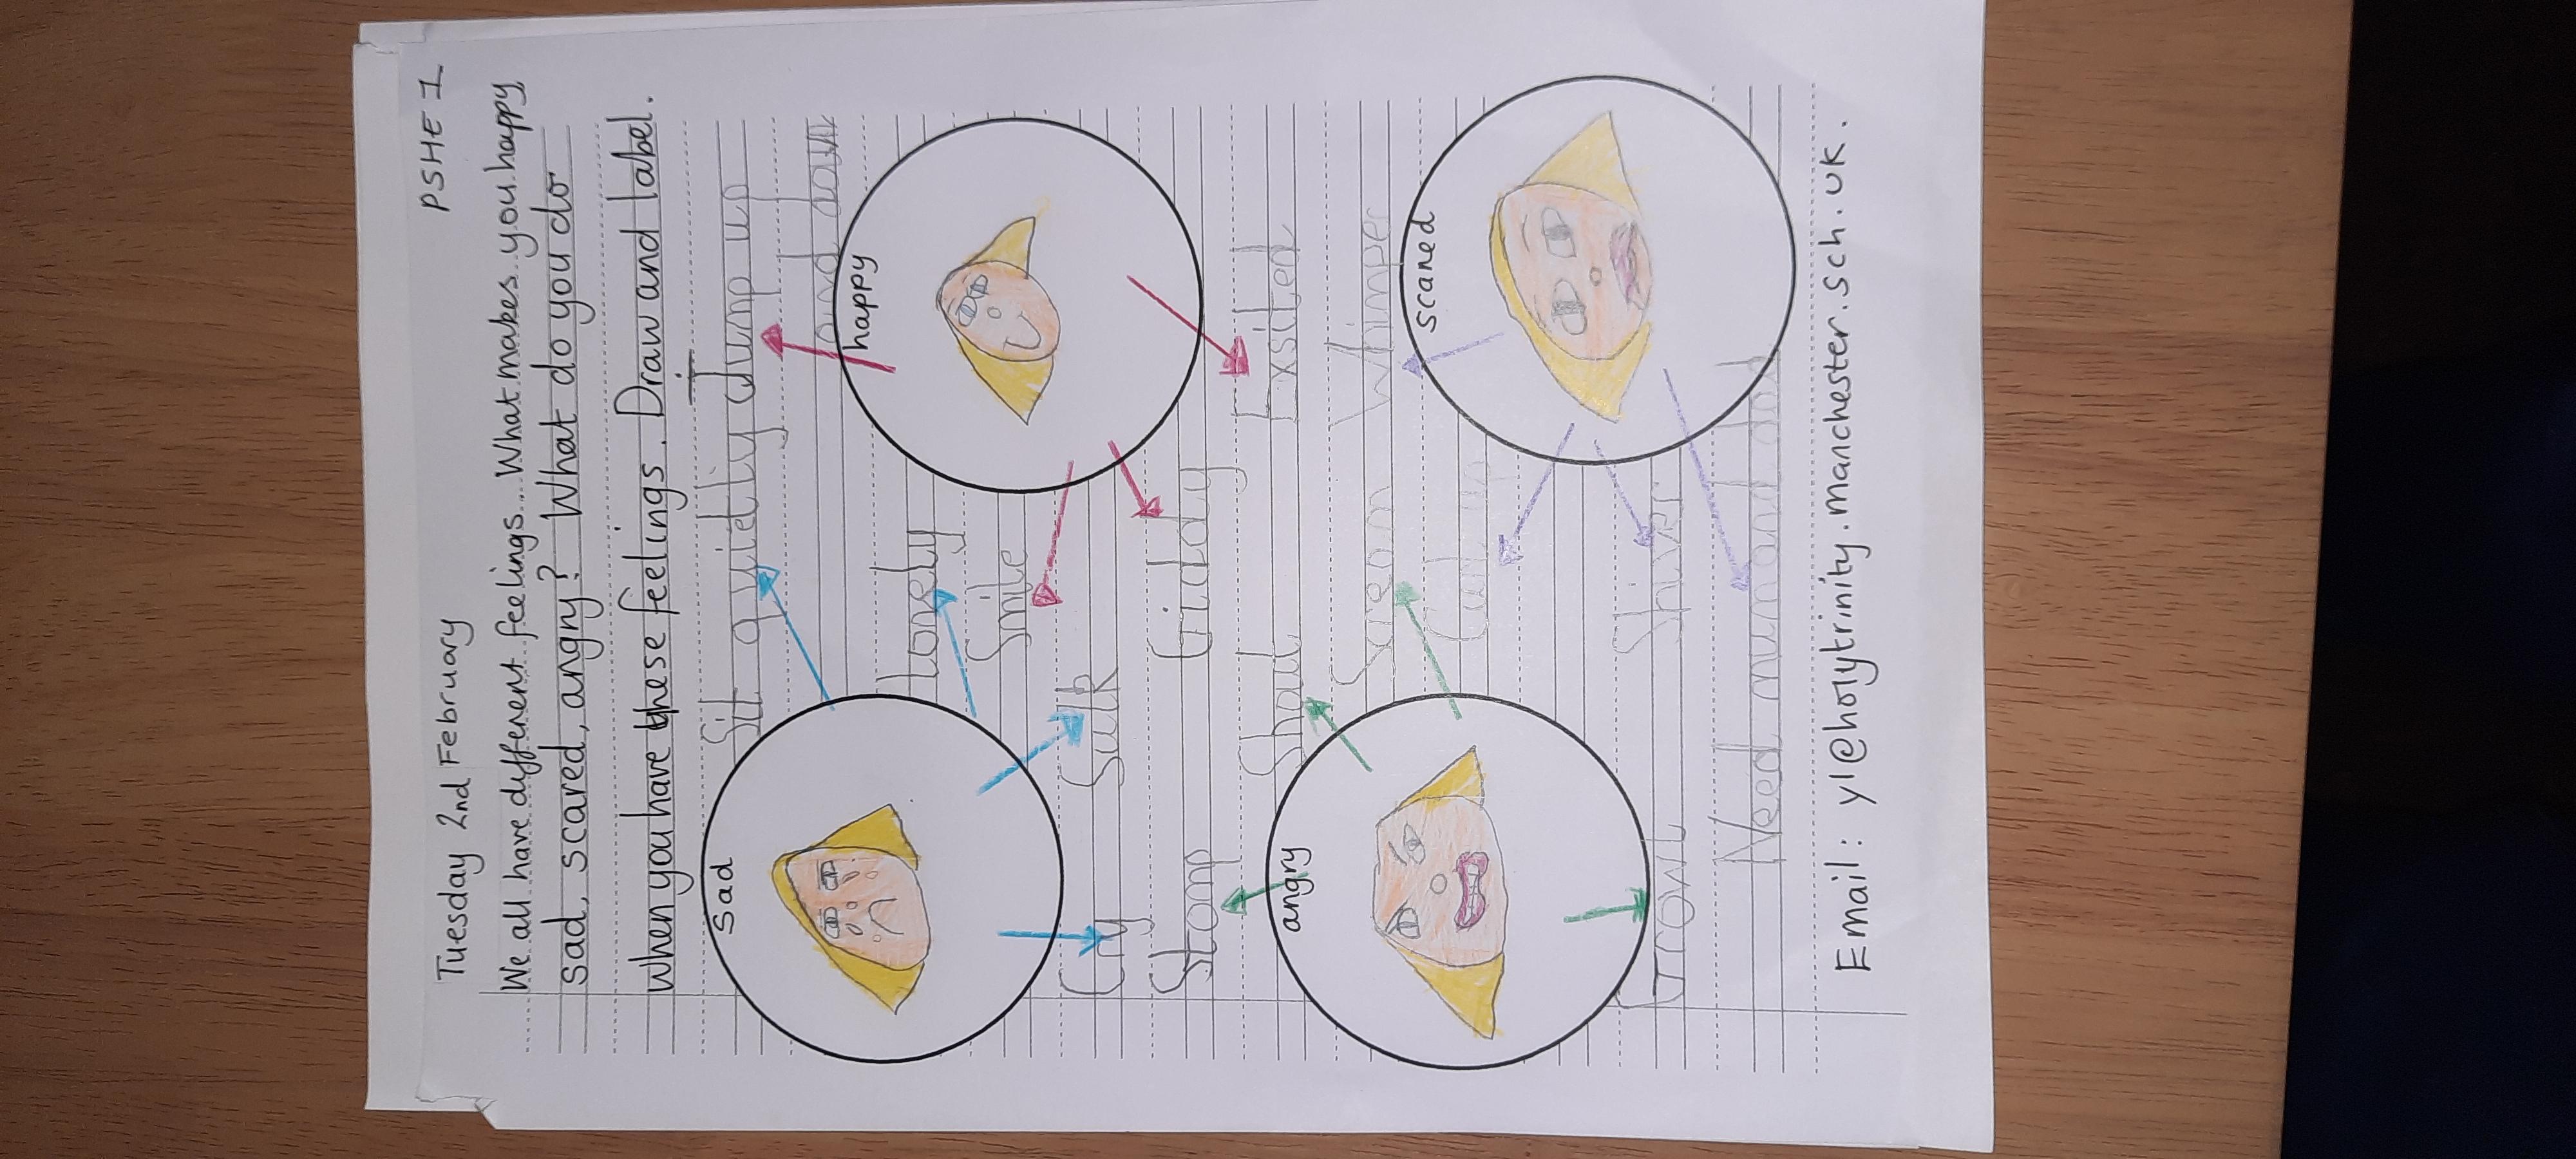 Tuesday 2nd February PSHE 1
We all have different feelings... What makes you happy
sad, scared, angry? What do you do
when you have these feelings. Draw and label.
Sit quietly Jump up
and down
sad
happy
Lonely
Smile
Sulk
Cry
Giddy
Stomp
Exsited
Shout
angry
Whimper
Scream
scared
Curl up
Shiver
Growl
Need mum and dad
Email: y1@holytrinity.manchester.sch.uk.